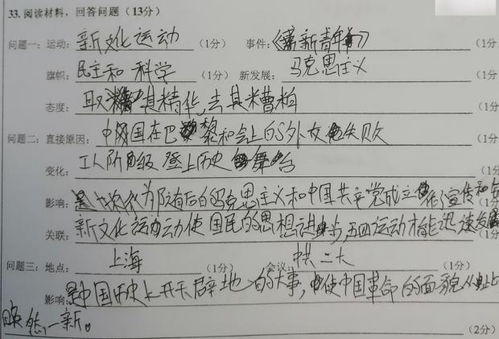 33. 阅读材料，回答问题（13分）
问题一：运动：新文化运动（1分） 事件：《新青年》（1分）
旗帜：民主和科学（1分） 新发展：马克思主义（1分）
态度：取其精华，去其糟粕（1分）
问题二：直接原因：中国在巴黎和会上的外交失败（1分）
变化：工人阶级登上历史舞台（1分）
影响：为随后的马克思主义和中国共产党成立宣传和（1分）
关联：新文化运动使国民的思想进步，五四运动才能迅速发展
问题三：地点：上海（1分） 会议：中共二大（1分）
影响：是中国历史上开天辟地的大事，使中国革命的面貌从此
焕然一新。（2分）